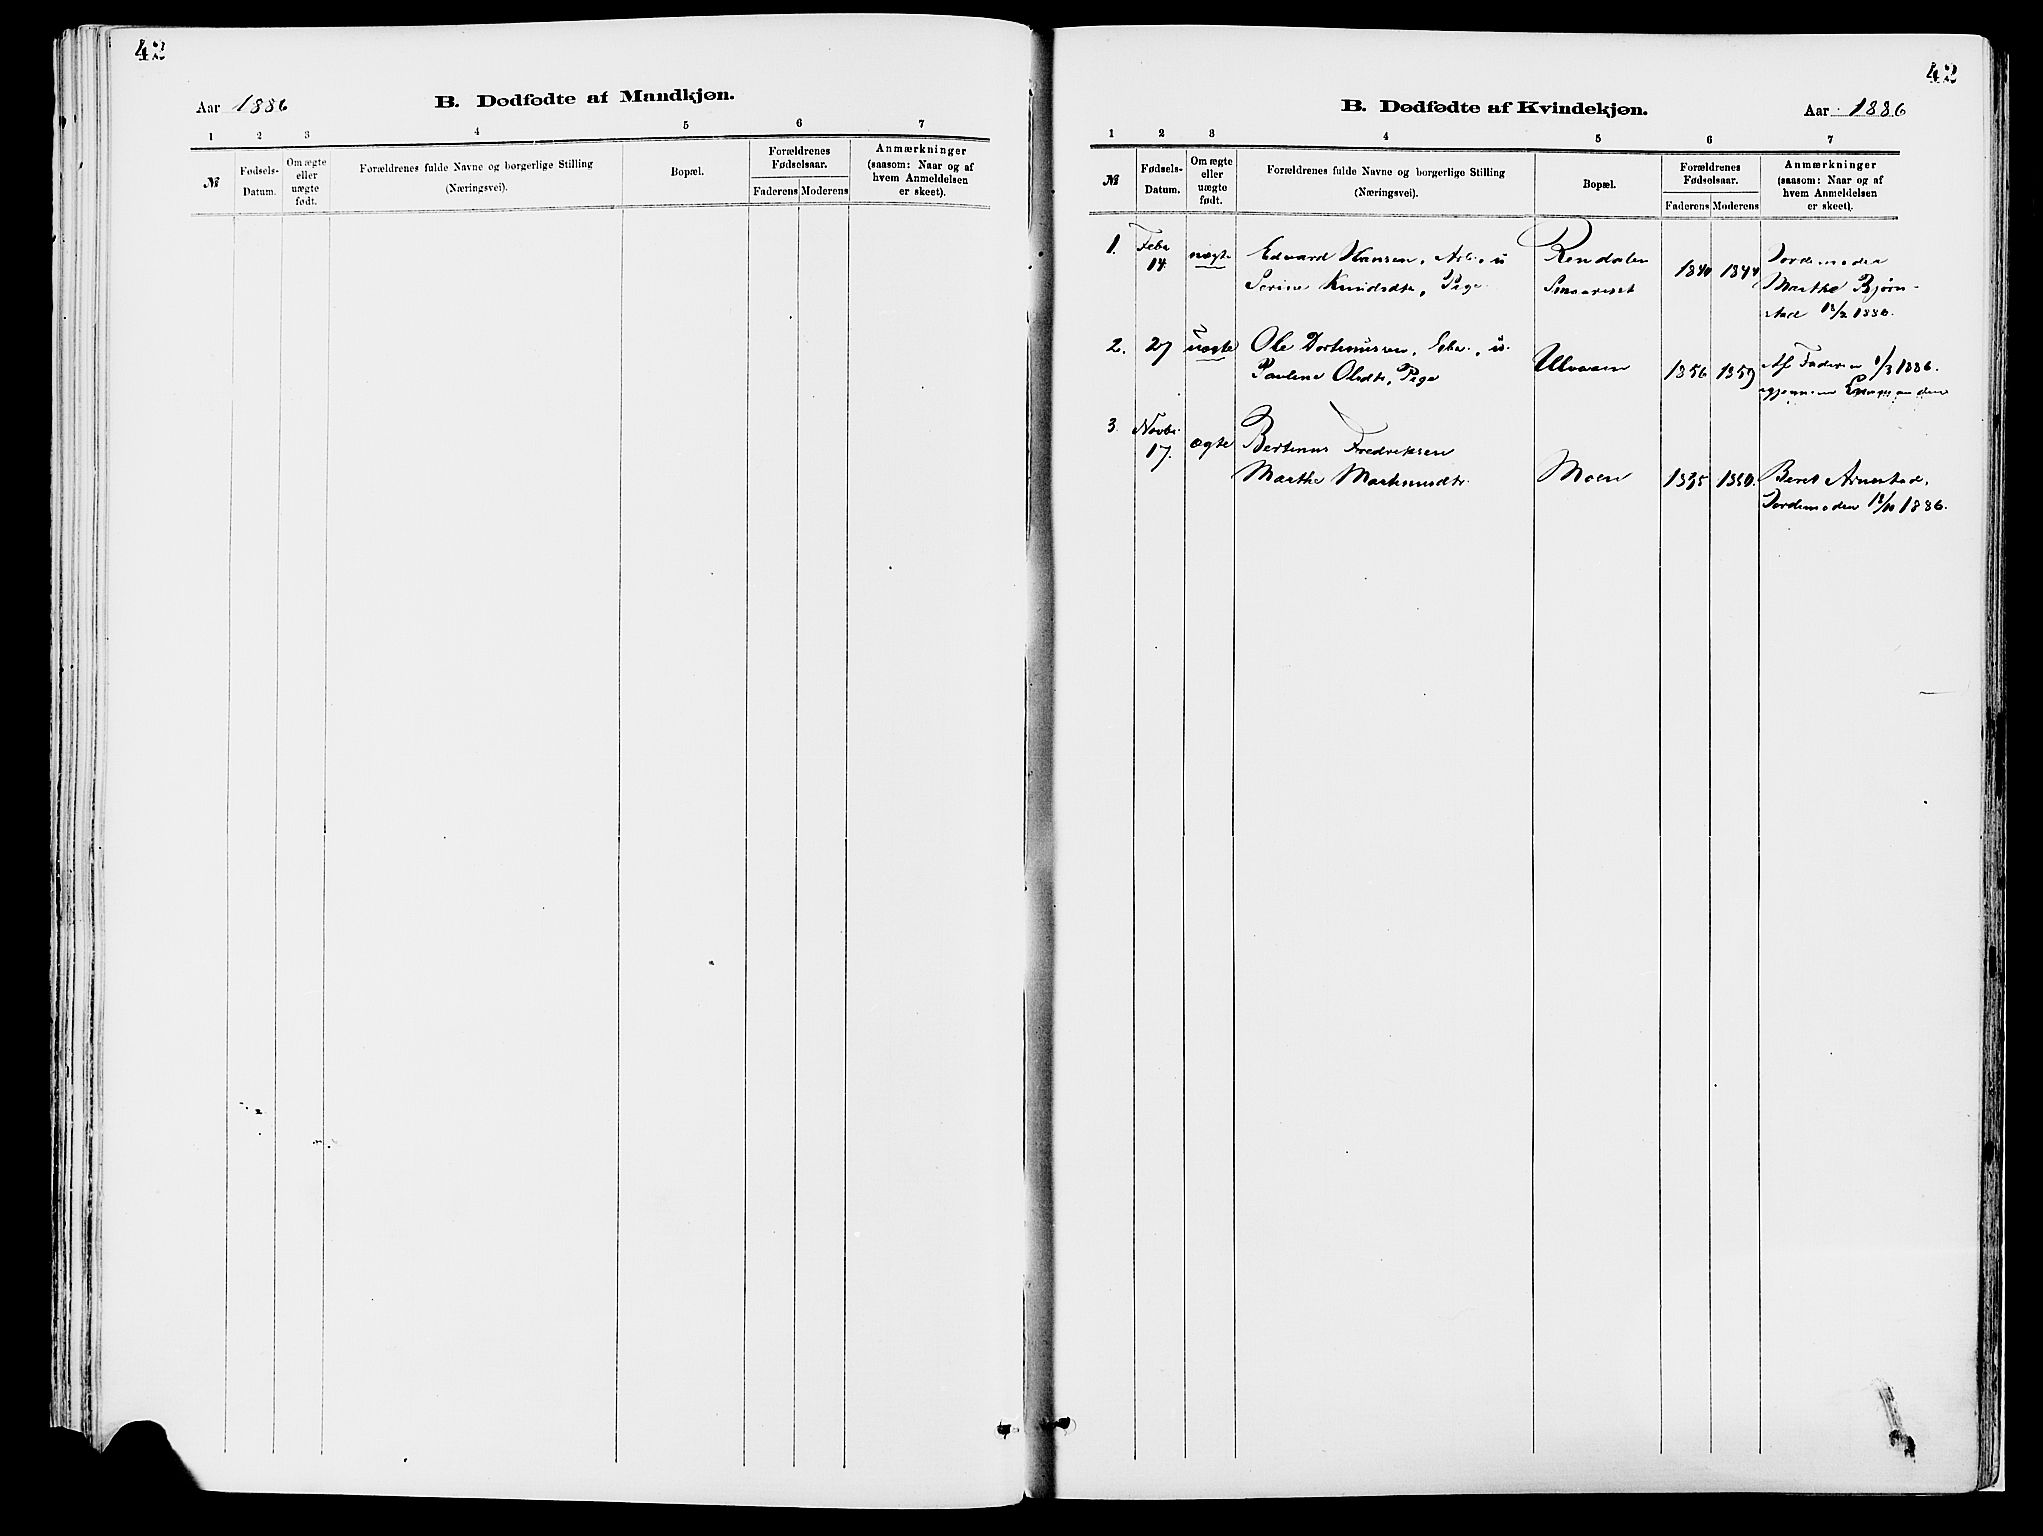 42
Aar 1886
B. Dødfødte af Mandkjøn.
1 2 3 4 5 6 7
№
Fødsels-
Datum.
Om ægte
eller
uægte
født.
Forældrenes fulde Navne og borgerlige Stilling
(Næringsvei).
Bopæl.
Forældrenes
Fødselsaar.
Faderens Moderens
Anmærkninger
(saasom: Naar og af
hvem Anmeldelsen
er skeet).
42
B. Dødfødte af Kvindekjøn.
Aar 1886
1 2 3 4 5 6 7
№
Fødsels-
Datum.
Om ægte
eller
uægte
født.
Forældrenes fulde Navne og borgerlige Stilling
(Næringsvei).
Bopæl.
Forældrenes
Fødselsaar.
Faderens Moderens
Anmærkninger
(saasom: Naar og af
hvem Anmeldelsen
er skeet).
1. Febr 14. uægte Edvard Hansen, Arb., u
Serine Knudsdtr, Pige
Rendalen
1840 1844
Jordemoder
Marthe Bjørn-
stad 1886.
2. 27 uægte Ole
Pauline Olsdtr, Pige
Ulvaaen
1856 1859
Af Faderen 1/3 1886.
igjennem
3. Novbr 17. ægte Bertinus Fredriksen
Marthe Martinusdtr.
Moen
1835 1850.
Beret Arnestad,
Jordemoder 1886.